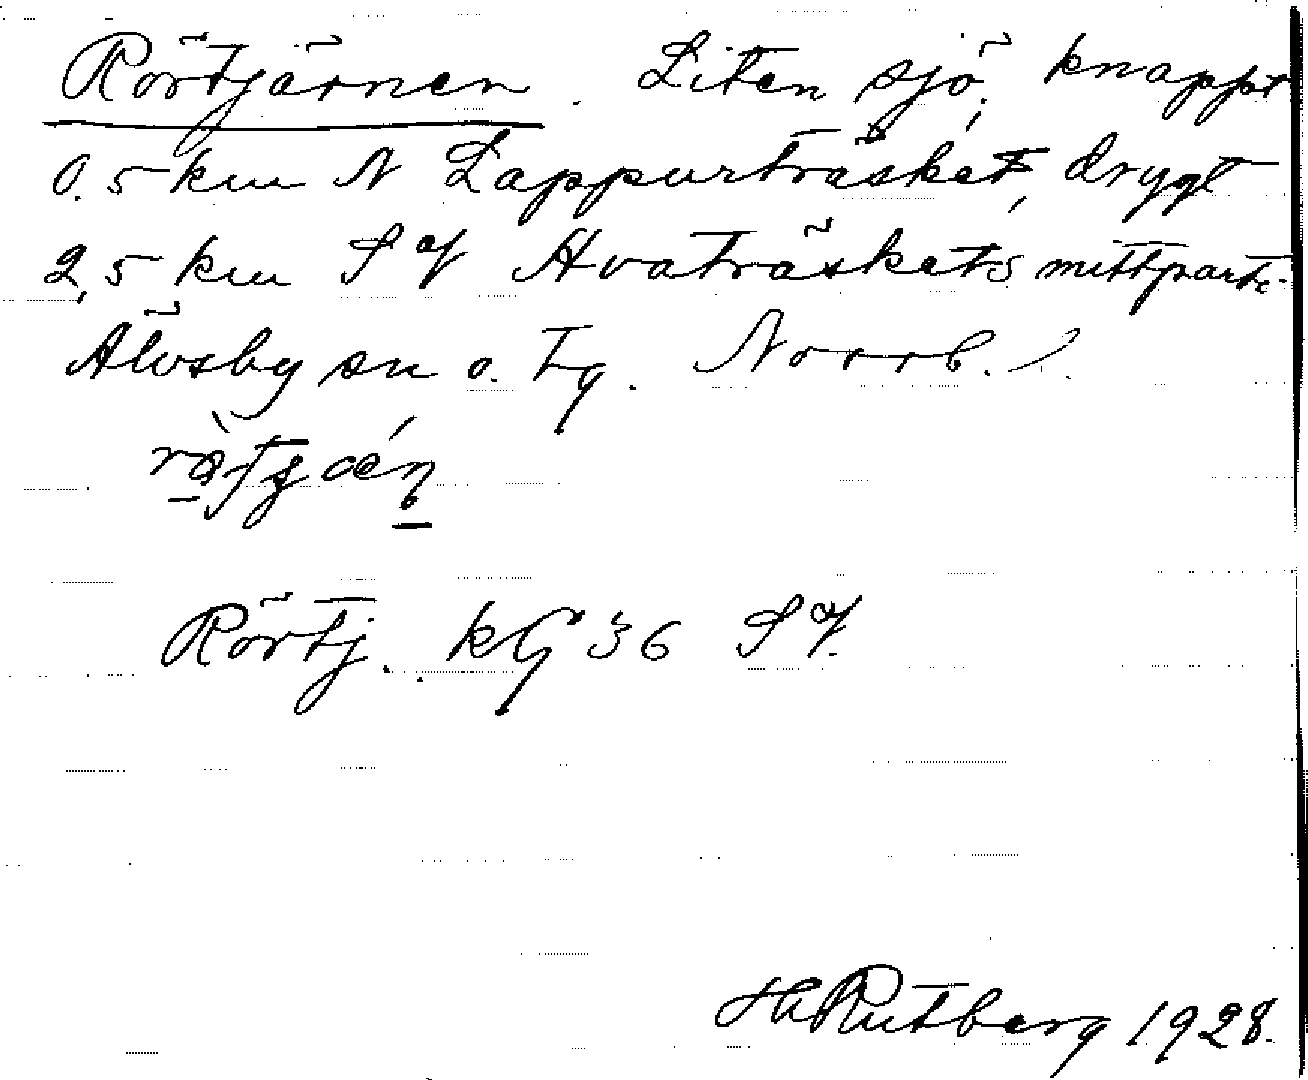 Rörtjärnen. Liten sjö, knappt
0,5 km N Lappurträsket, drygt
2,5 km S of Hvaträskets mittparti.
Älvsby sn o. tg. Norrb. l.
Rörtj. kG 36 S of.
H Rutberg 1928.